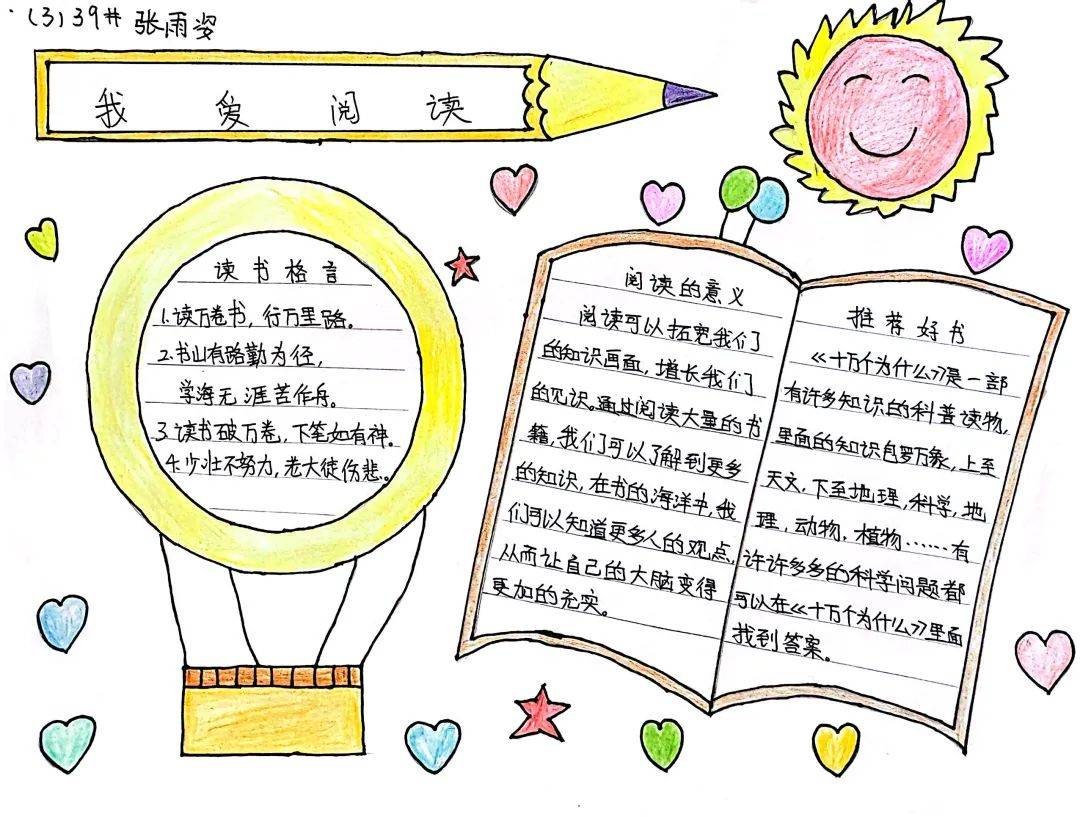 (3)39# 张雨姿
我爱阅读
读书格言
1.读万卷书，行万里路。
2.书山有路勤为径，
学海无涯苦作舟。
3.读书破万卷，下笔如有神。
4.少壮不努力，老大徒伤悲。
阅读的意义
阅读可以拓宽我们
的知识画面，增长我们
的见识。通过阅读大量的书
籍，我们可以了解到更多
的知识，在书的海洋中，我
们可以知道更多人的观点，
从而让自己的大脑变得
更加的充实。
推荐好书
《十万个为什么》是一部
有许多知识的科普读物，
里面的知识包罗万象，上至
天文，下至地理，科学，地
理，动物，植物……有
许许多多的科学问题都
可以在《十万个为什么》里面
找到答案。